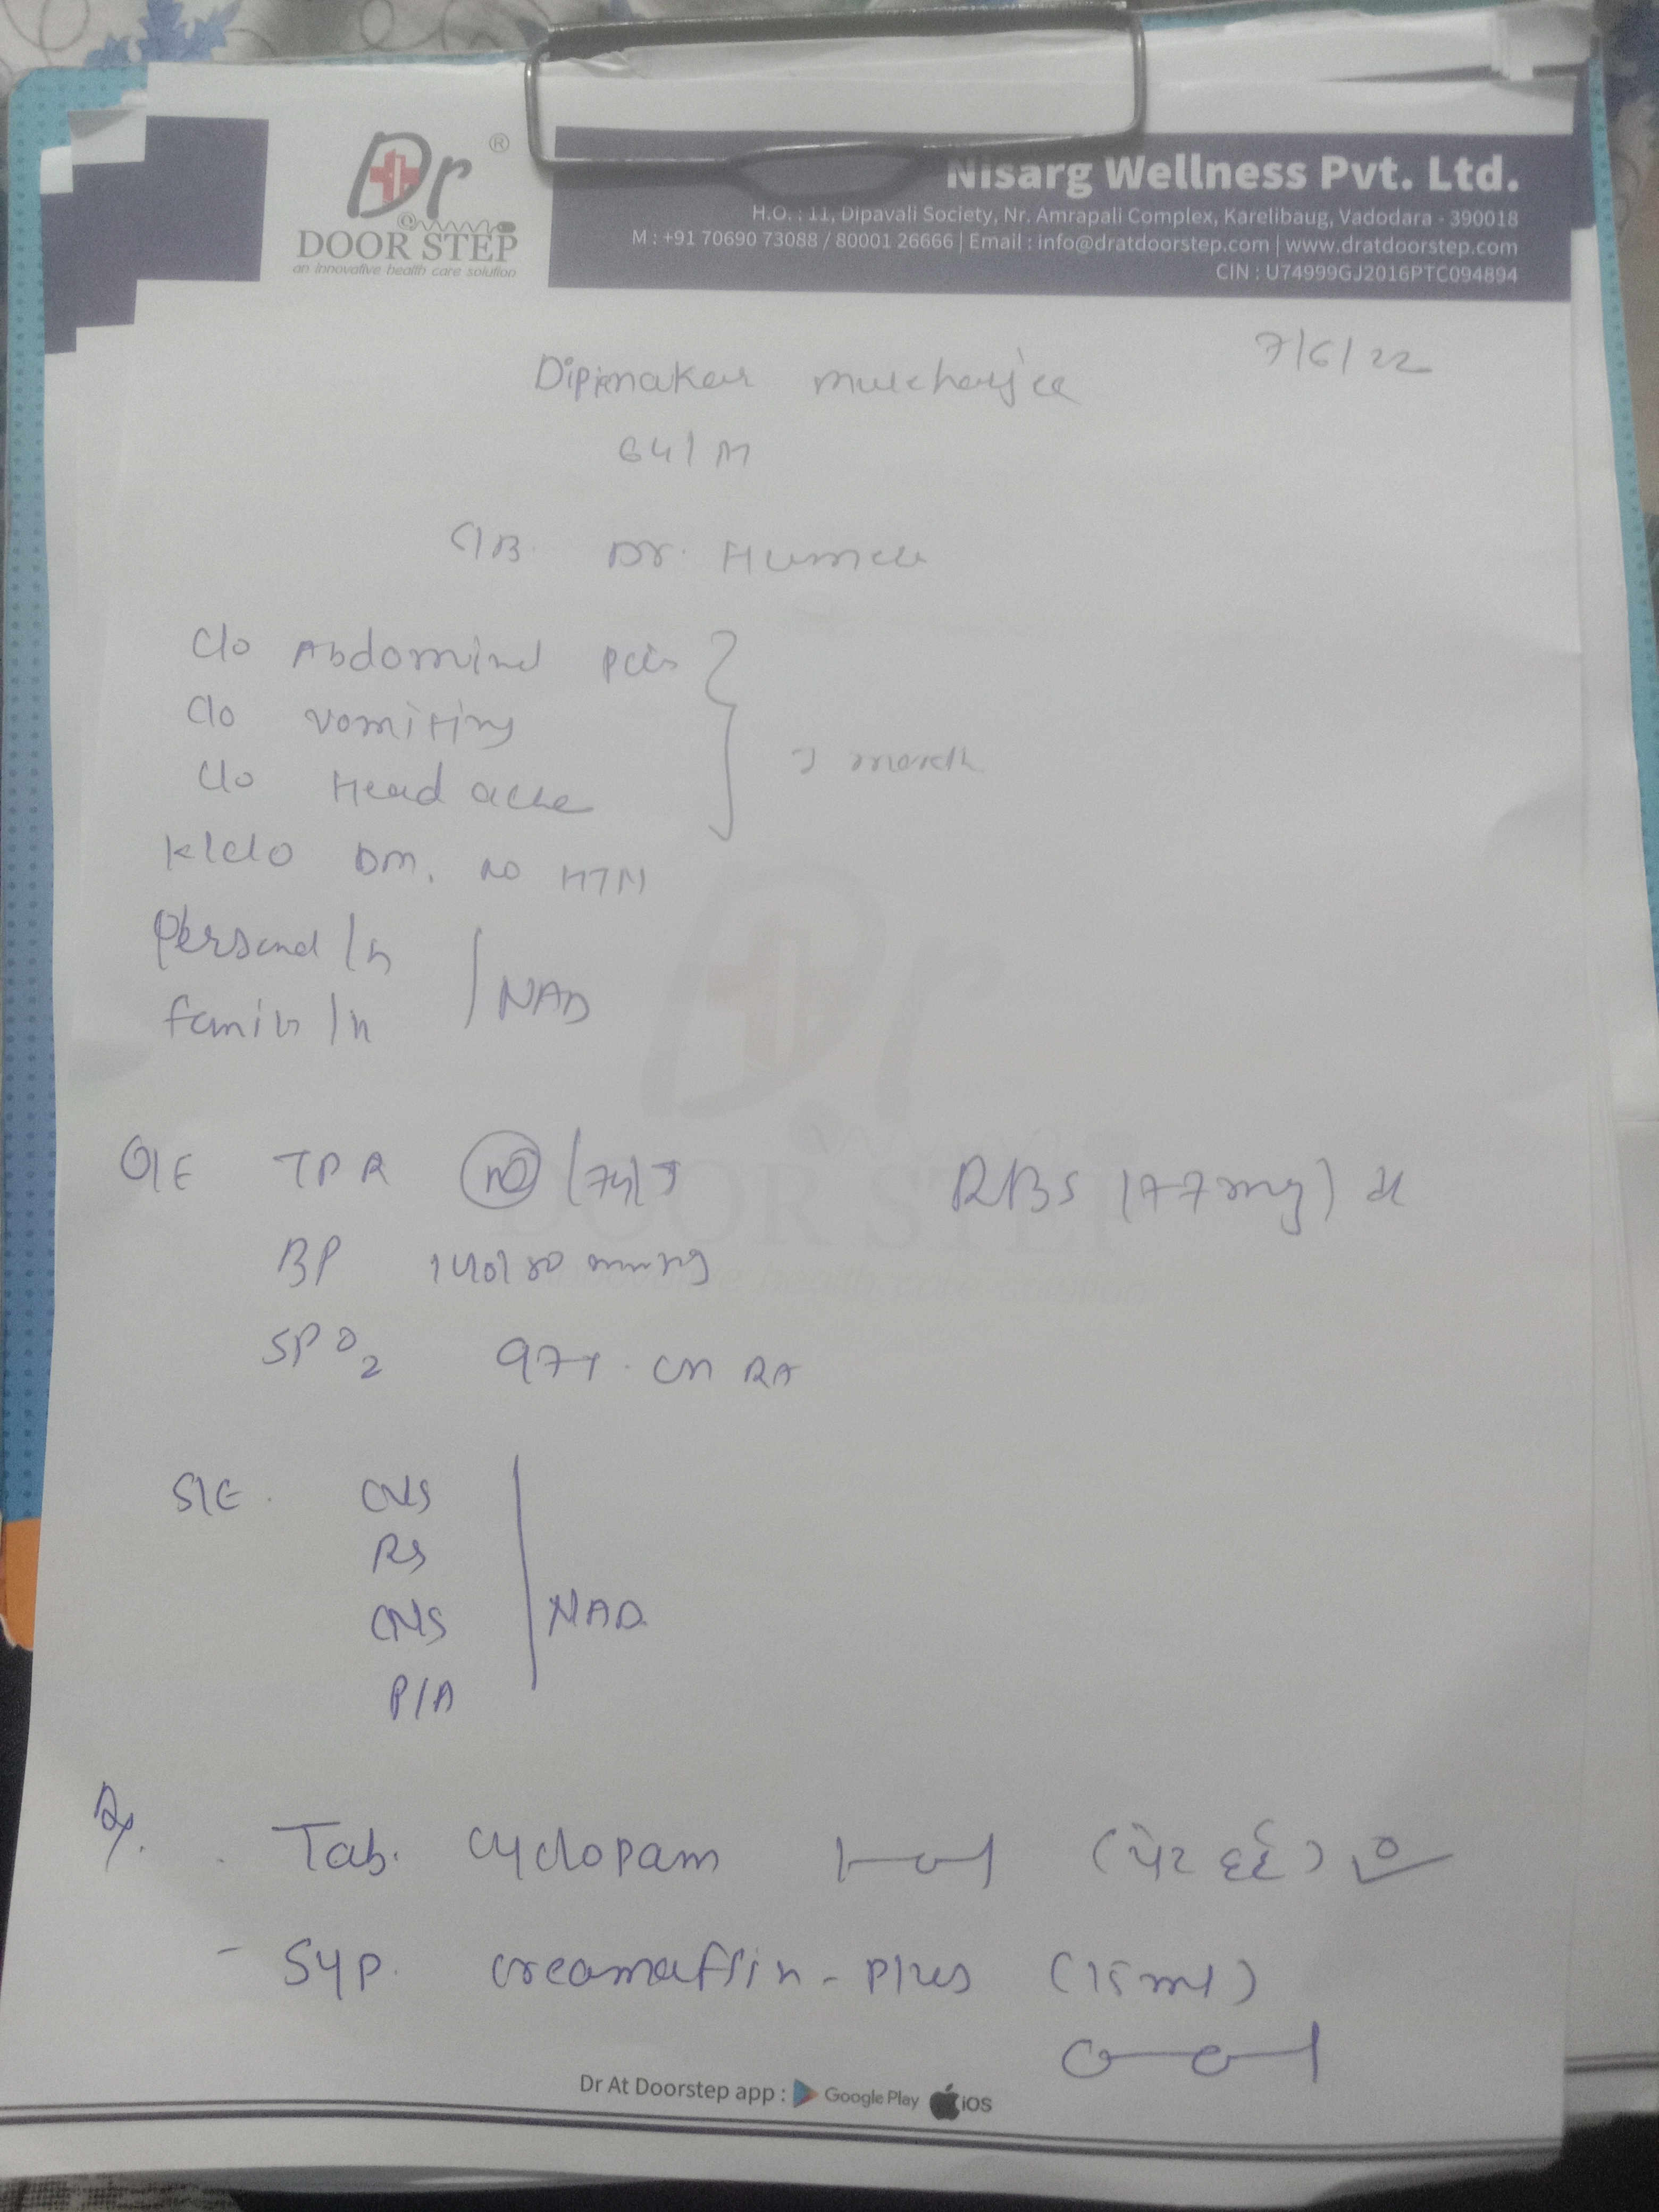 Dr
®
@
DOOR STEP
an innovative health care solution
Nisarg Wellness Pvt. Ltd.
H.O. : 11, Dipavali Society, Nr. Amrapali Complex, Karelibaug, Vadodara - 390018
M : +91 70690 73088 / 80001 26666 | Email : info@dratdoorstep.com | www.dratdoorstep.com
CIN : U74999GJ2016PTC094894
7/6/22
mukharjee
64/M
Dr.
C/o Abdominal pain
C/o vomiting
C/o Headache
month
K/C/O DM. no HTN
Personal /h
family /h
NAD
O/E TPR
RBS (177mg)
BP 140/80 mmHg
SPO2 97% on RA
S/E.
RS
CNS
P/A
NAD
Rx.
Tab. cyclopam 1-0-1 (પેટ દર્દ)
- Syp. creamaffin - plus (15ml)
0-0-1
Dr At Doorstep app : Google Play iOS